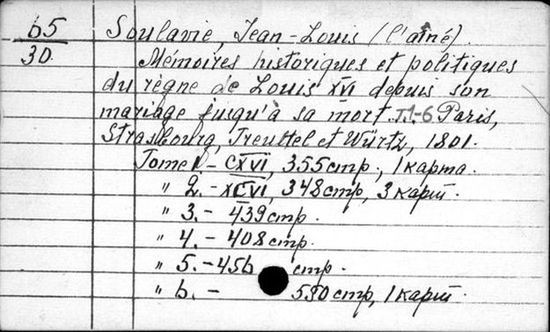 65
30
Soulavie, Jean-Louis (l'aîné).
Mémoires historiques et politiques
du règne de Louis XVI depuis son
mariage jusqu'à sa mort. T.1-6 Paris,
Strasbourg, Treuttel et Würtz, 1801.
Tome 1.- CXVI, 355 стр., 1 карта.
" 2.- XCVI, 348 стр, 3 карт.
" 3.- 439 стр.
" 4.- 408 стр.
" 5.- 456 стр.
" 6.- 590 стр, 1 карт.